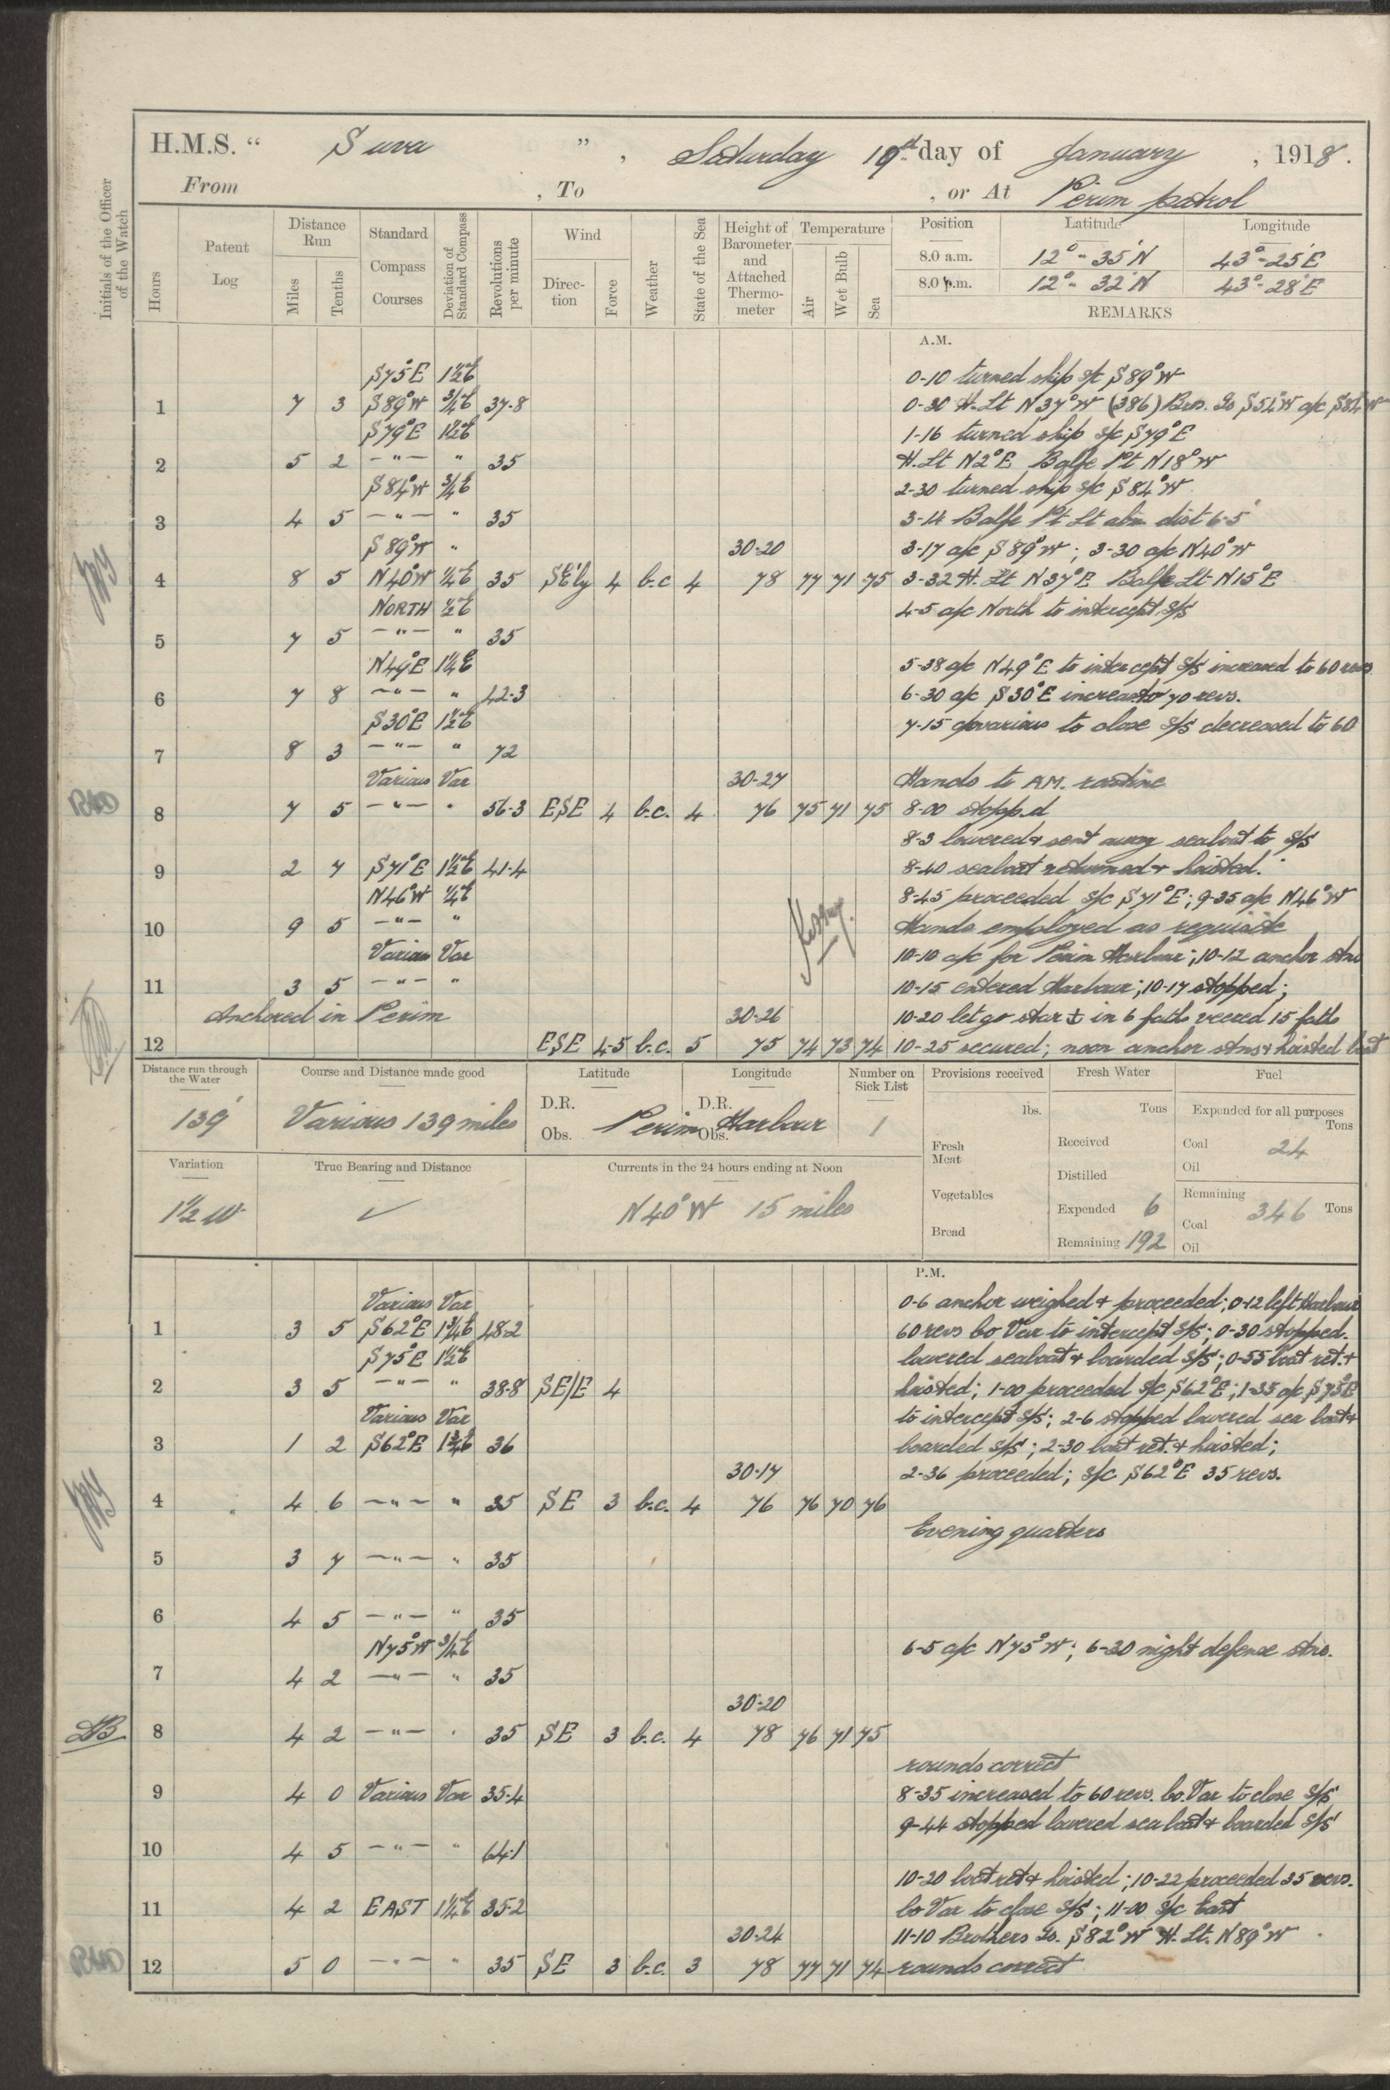 H.M.S. “ Suva ” , Saturday 19th day of January , 1918.
From , To , or At Perim patrol
Initials of the Officer of the Watch
Hours
Patent Log
Distance Run
Miles
Tenths
Standard Compass Courses
Deviation of Standard Compass
Revolutions per minute
Wind
Direction
Force
Weather
State of the Sea
Height of Barometer and Attached Thermometer
Temperature
Air
Wet Bulb
Sea
Position Latitude Longitude
8.0 a.m. 12°- 35'N 43°-25'E
8.0 p.m. 12°- 32'N 43°-28'E
REMARKS
A.M.
S75°E 1½E 0-10 turned ship s/c S89°W
1 7 3 S89°W ¾E 37·8 0-30 H. Lt N37°W (386) Bros. Is S54°W a/c S84°W
S79°E 1½E 1-16 turned ship s/c S79°E
2 5 2 -"- " 35 H. Lt N2°E Balfe Pt N18°W
S84°W ¾E 2-30 turned ship s/c S84°W
3 4 5 -"- " 35 3-14 Balfe Pt Lt abm dist 6·5'
S89°W " 30·20 3-17 a/c S89°W; 3-30 a/c N40°W
4 8 5 N40°W ¼E 35 SE'ly 4 b.c 4 78 77 71 75 3-32 H. Lt N37°E Balfe Lt N15°E
NORTH ½E 4-5 a/c North to intercept S/S
5 7 5 -"- " 35
N49°E 1¼E 5-38 a/c N49°E to intercept S/S increased to 60 revs
6 7 8 -"- " 42·3 6-30 a/c S30°E increased to 70 revs.
S30°E 1½E 7-15 c/o various to close S/S decreased to 60
7 8 3 -"- " 72
Various Var 30·27 Hands to A.M. routine
8 7 5 -"- " 56·3 ESE 4 b.c. 4 76 75 71 75 8-00 stopp.d
8-3 lowered & sent away seaboat to S/S
9 2 7 S71°E 1½E 41·4 8-40 seaboat returned & hoisted.
N46°W ¼E 8-45 proceeded s/c S71°E; 9-35 a/c N46°W
10 9 5 -"- " Hands employed as requisite
Various Var 10-10 a/c for Perim Harbour; 10-12 anchor stns
11 3 5 -"- " 10-15 entered Harbour; 10-17 stopped;
Anchored in Perim 30·26 10-20 let go star ⚓ in 6 faths veered 15 faths
12 ESE 4-5 b.c. 5 75 74 73 74 10-25 secured; noon anchor stns & hoisted boat
Distance run through the Water
139'
Course and Distance made good
Various 139 miles
Latitude Longitude
D.R. D.R.
Obs. Perim Obs. Harbour
Number on Sick List
1
Provisions received
lbs.
Fresh Meat
Vegetables
Bread
Fresh Water
Tons
Received
Distilled
Expended 6
Remaining 192
Fuel
Expended for all purposes
Tons
Coal 24
Oil
Remaining
Coal 346 Tons
Oil
Variation
1½ W
True Bearing and Distance
✓
Currents in the 24 hours ending at Noon
N40°W 15 miles
P.M.
Various Var 0-6 anchor weighed & proceeded; 0-12 left Harbour
1 3 5 S62°E 1¾E 48·2 60 revs Co Var to intercept S/S; 0-30 stopped.
S75°E 1½E lowered seaboat & boarded S/S; 0-55 boat ret. &
2 3 5 -"- " 38·8 SE/E 4 hoisted; 1-00 proceeded s/c S62°E; 1-35 a/c S75°E
Various Var to intercept S/S; 2-6 stopped lowered sea boat &
3 1 2 S62°E 1¾E 36 boarded S/S; 2-30 boat ret. & hoisted;
30·17 2-36 proceeded; s/c S62°E 35 revs.
4 4 6 -"- " 35 SE 3 b.c. 4 76 76 70 76
Evening quarters
5 3 7 -"- " 35
6 4 5 -"- " 35
N75°W ¾E 6-5 a/c N75°W; 6-20 night defence stns.
7 4 2 -"- " 35
30·20
8 4 2 -"- " 35 SE 3 b.c. 4 78 76 71 75
rounds correct
9 4 0 Various Var 35·4 8-35 increased to 60 revs. Co. Var to close S/S
9-44 stopped lowered sea boat & boarded S/S
10 4 5 -"- " 64·1
10-20 boat ret & hoisted; 10-22 proceeded 35 revs.
11 4 2 EAST 1¼E 35·2 Co Var to close S/S; 11-00 s/c East
30·24 11-10 Brothers Is. S82°W H. Lt. N89°W
12 5 0 -"- " 35 SE 3 b.c. 3 78 77 71 74 rounds correct